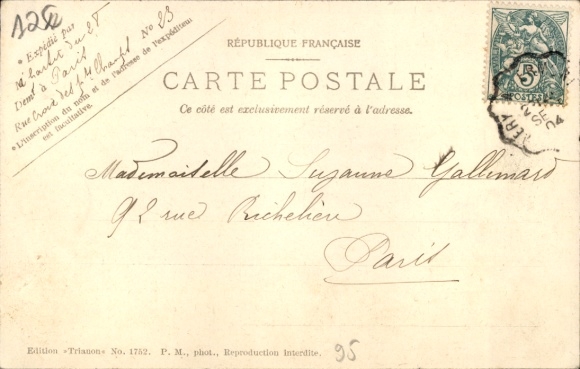 125
* Expédié par
M
Demt à Paris
Rue Croix des pts Champs No 23
* L'inscription du nom et de l'adresse de l'expéditeur
est facultative.
RÉPUBLIQUE FRANÇAISE
CARTE POSTALE
Ce côté est exclusivement réservé à l'adresse.
5
POSTES
04
Mademoiselle Suzanne Gallimard
92 rue Richelière
Paris
Edition »Trianon« No. 1752. P. M., phot., Reproduction interdite.
95